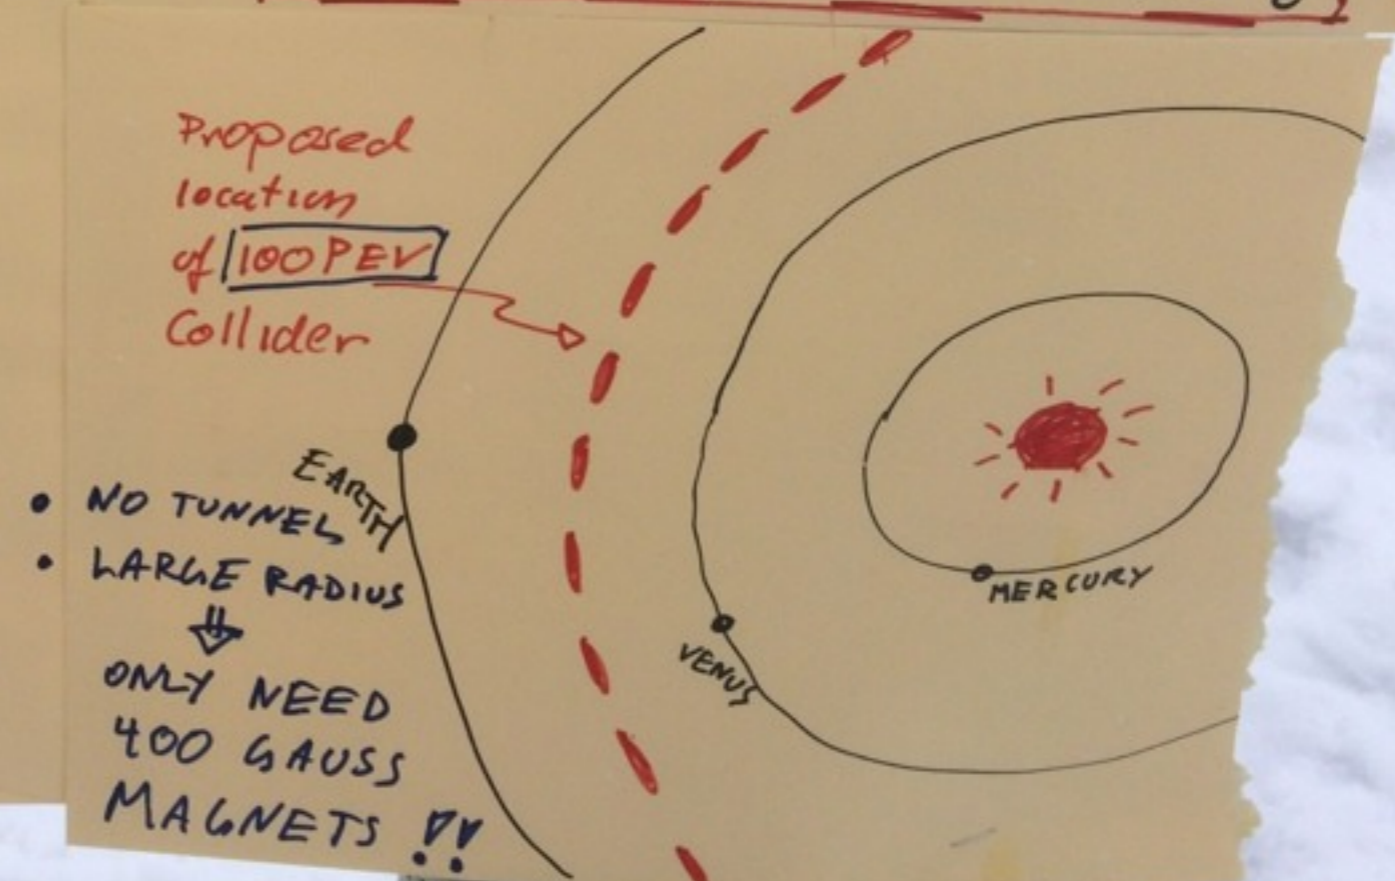 Proposed
location
of 100 PEV
Collider
EARTH
• NO TUNNEL
• LARGE RADIUS
⇓
ONLY NEED
400 GAUSS
MAGNETS !!
MERCURY
VENUS